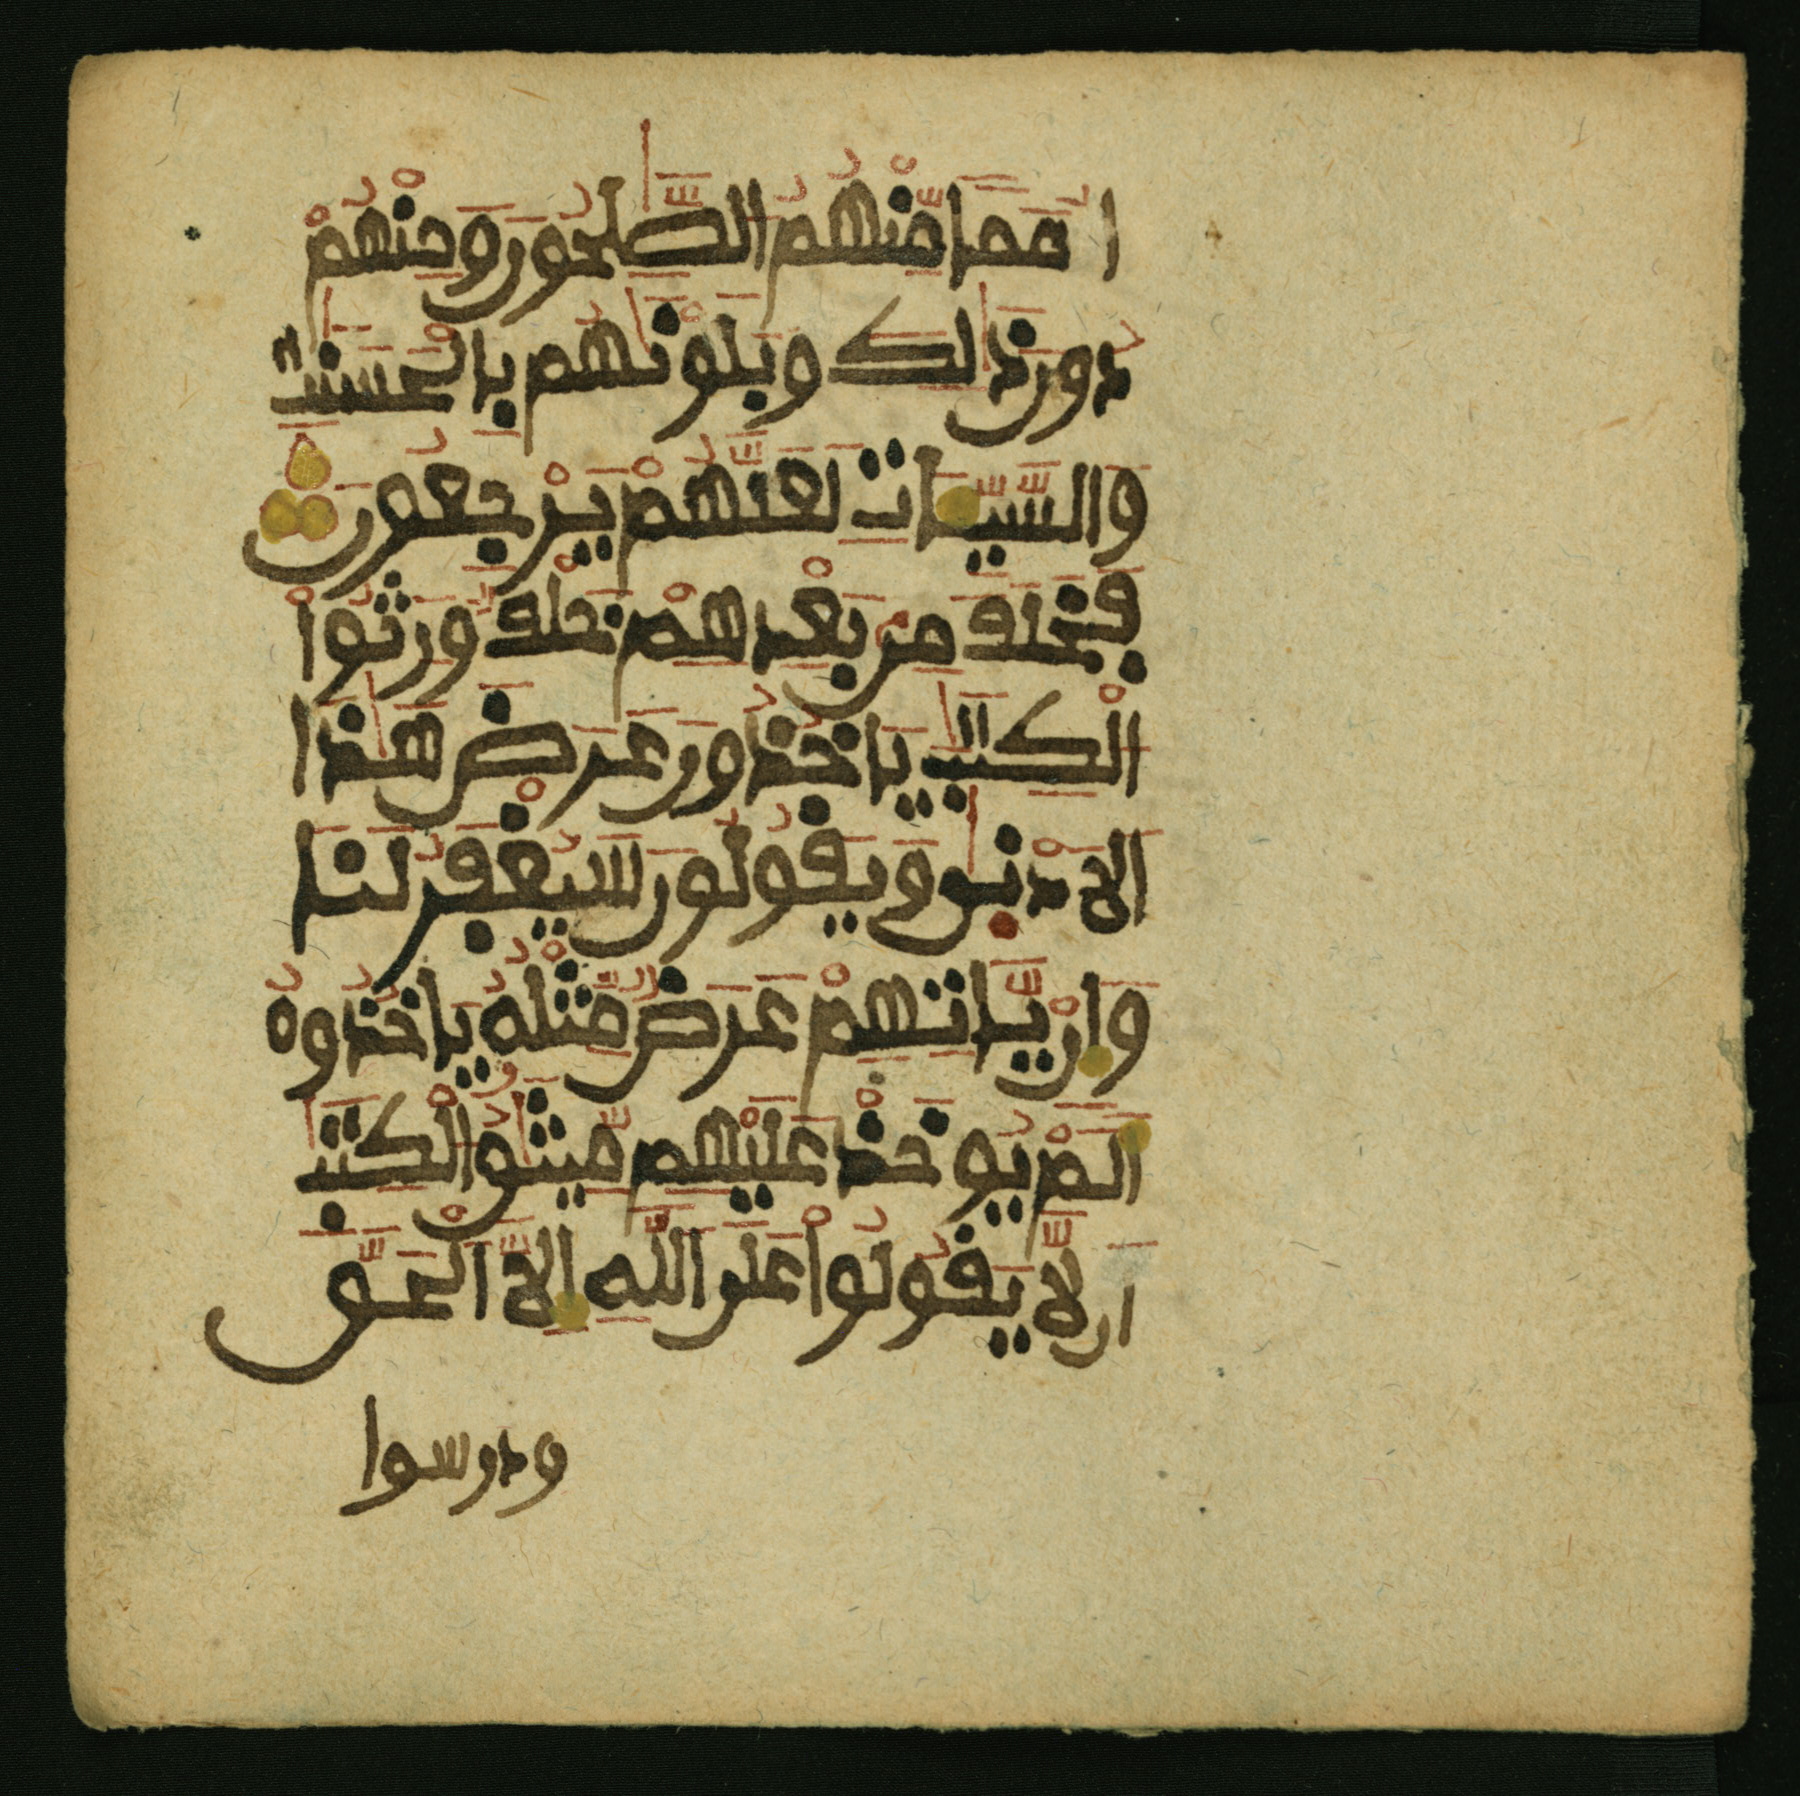 اُمَمًا مِّنْهُمُ الصَّٰلِحُونَ وَمِنْهُمْ
دُونَ ذَٰلِكَ وَبَلَوْنَٰهُم بِالْحَسَنَٰتِ
وَالسَّيِّـَٔاتِ لَعَلَّهُمْ يَرْجِعُونَ
فَخَلَفَ مِنۢ بَعْدِهِمْ خَلْفٌ وَرِثُوا۟
الْكِتَٰبَ يَاخُذُونَ عَرَضَ هَٰذَا
الَادْنَىٰ وَيَقُولُونَ سَيُغْفَرُ لَنَا
وَإِنْ يَّاتِهِمْ عَرَضٌ مِّثْلُهُ يَاخُذُوهُ
أَلَمْ يُوخَذْ عَلَيْهِم مِّيثَٰقُ الْكِتَٰبِ
أَن لَّا يَقُولُوا۟ عَلَى اللَّهِ إِلَّا الْحَقَّ
ودرسوا